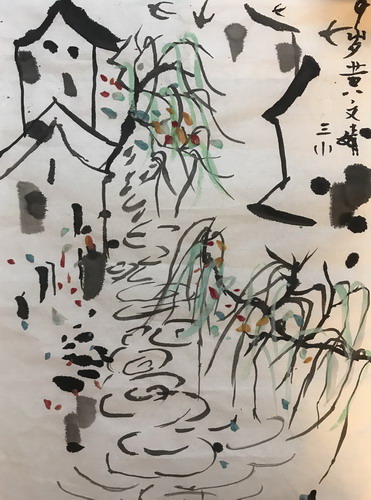 9岁黄文婧
三小